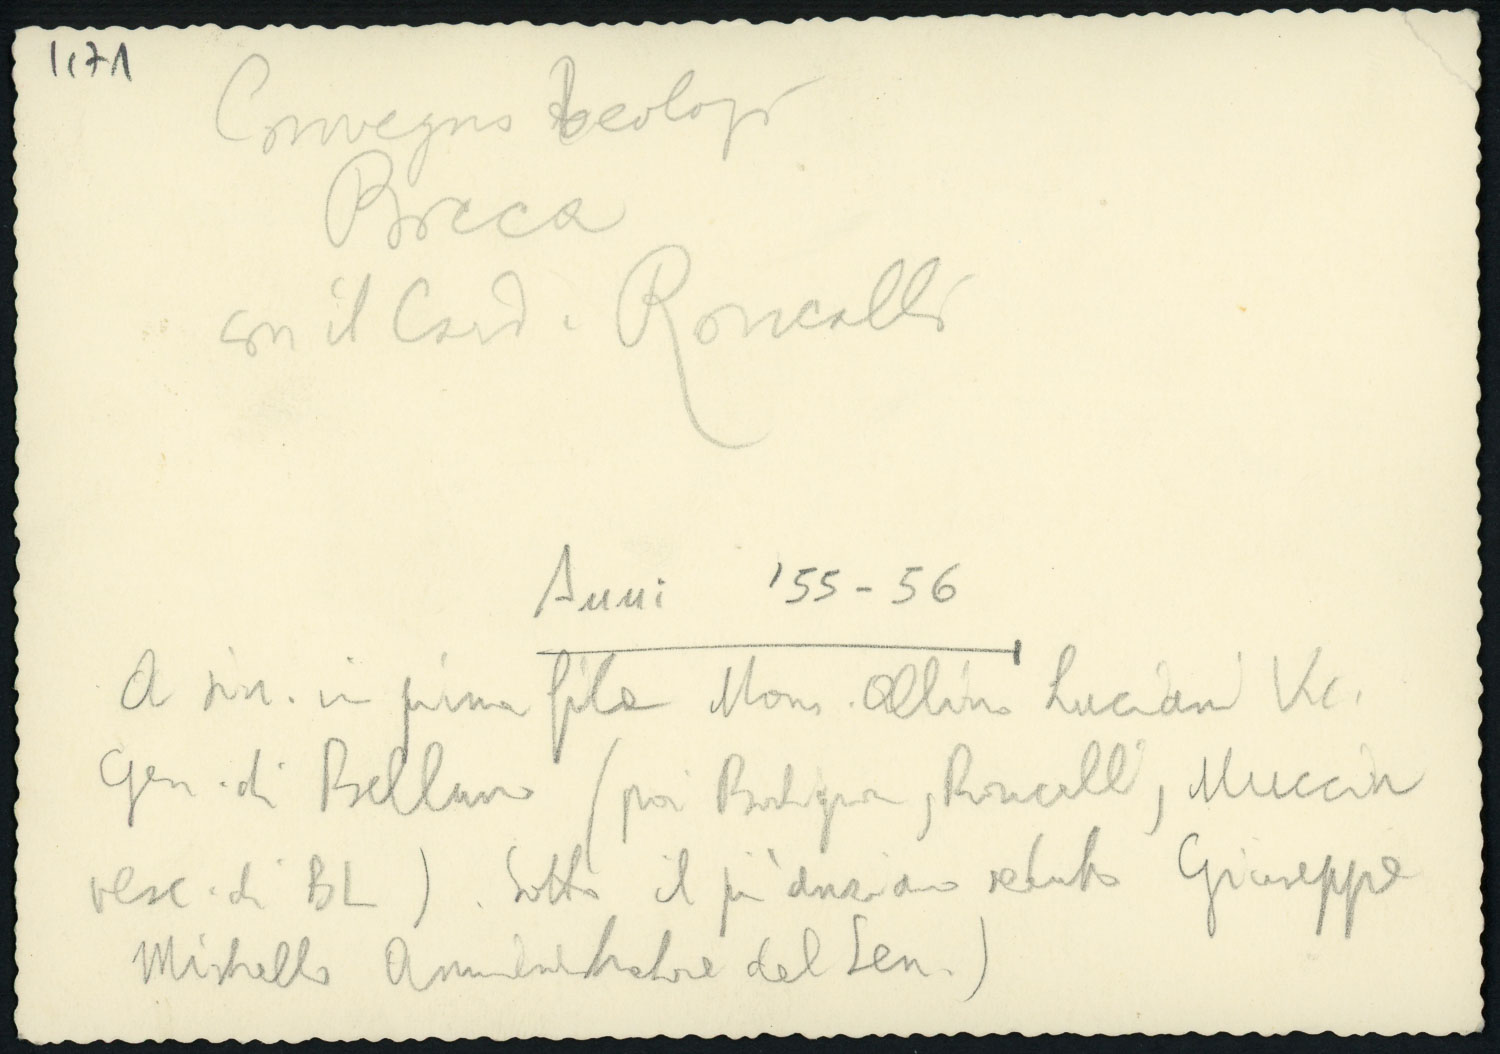 1171
Convegno teologi
Bocca
con il Card. Roncalli
Anni '55-56
A sin. in prima fila Mons. Albino Luciani Vic.
Gen. di Belluno (poi Bortignon, Roncalli, Muccin
vesc. di BL). Sotto il più anziano seduto Giuseppe
Amministratore del Sem.)